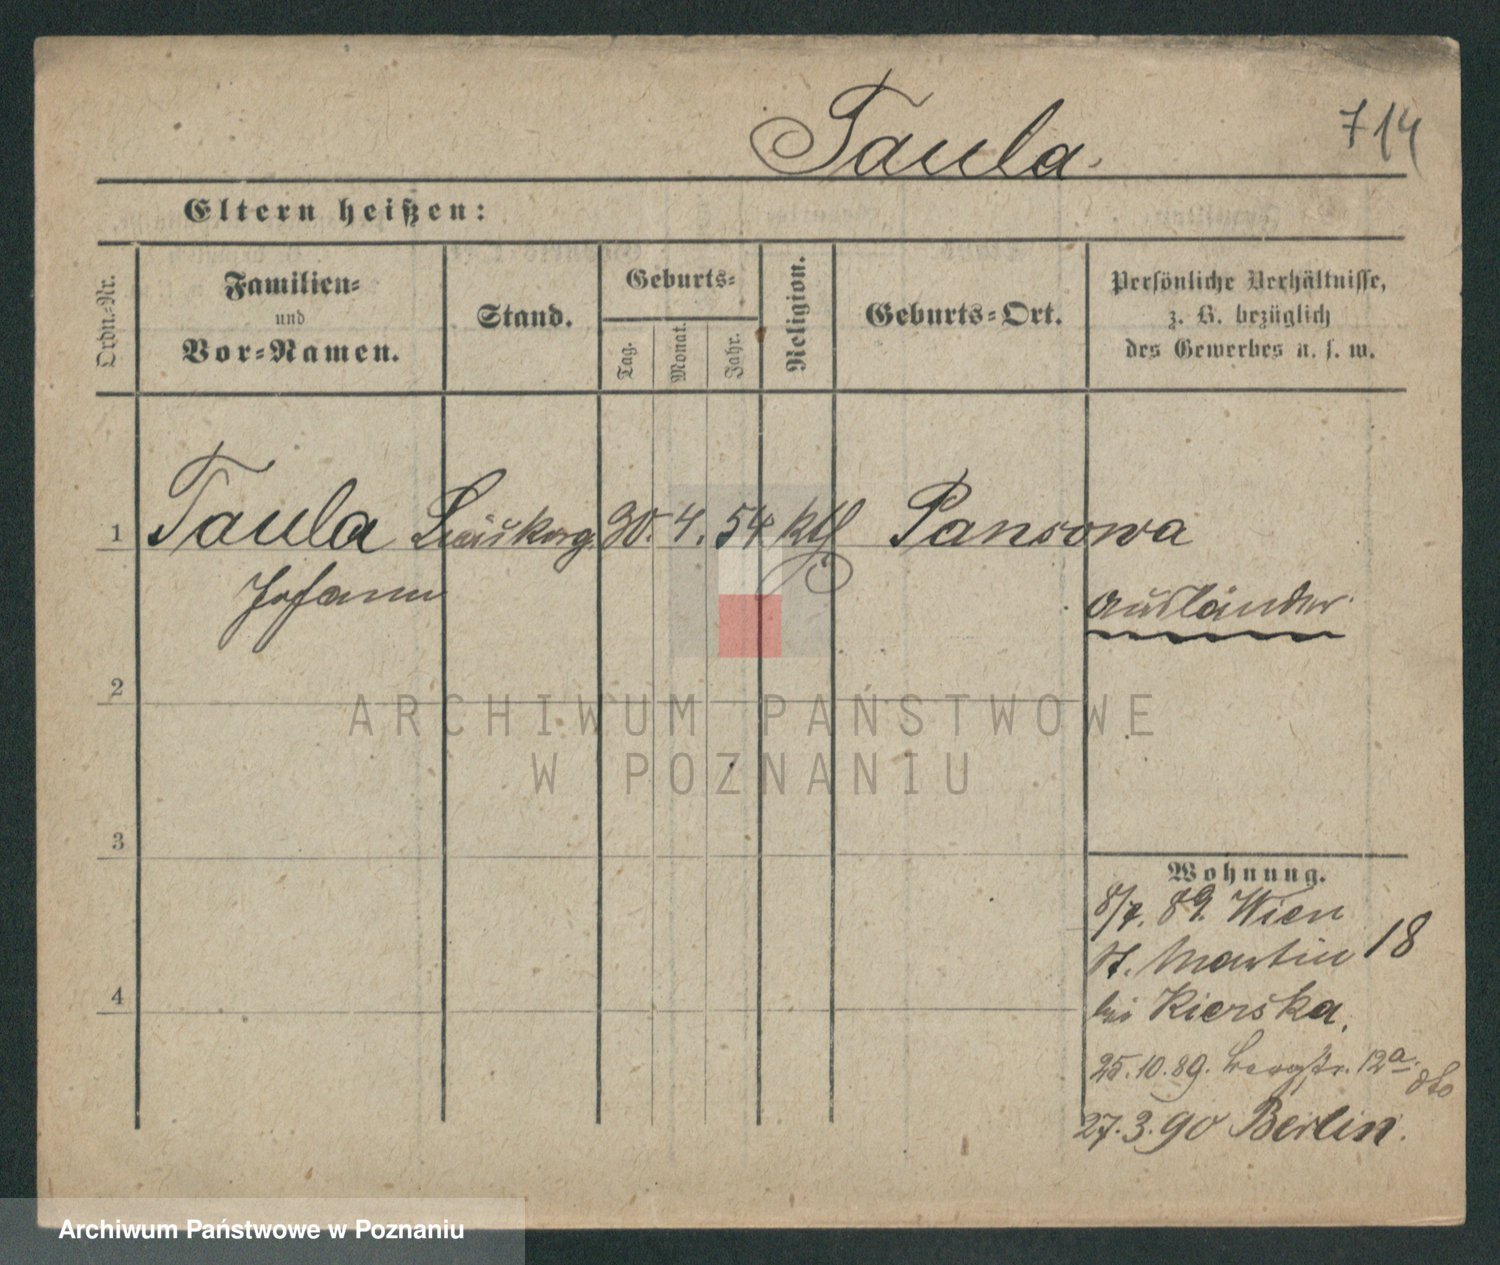 Taula.
714
Eltern heißen:
Ordn.-Nr.
Familien-
und
Vor-Namen.
Stand.
Geburts-
Tag.
Monat.
Jahr.
Religion.
Geburts-Ort.
Persönliche Verhältnisse,
z. B. bezüglich
des Gewerbes u. s. w.
1 Taula 30. 4. 54 kth Pansowa
Johann
Ausländer.
2
3
4
Wohnung.
8/7. 89. Wien
St. Martin 18
bei Kierska,
25.10.89. Bergstr. 12a. dto
27.3.90 Berlin.
ARCHIWUM PAŃSTWOWE
W POZNANIU
Archiwum Państwowe w Poznaniu